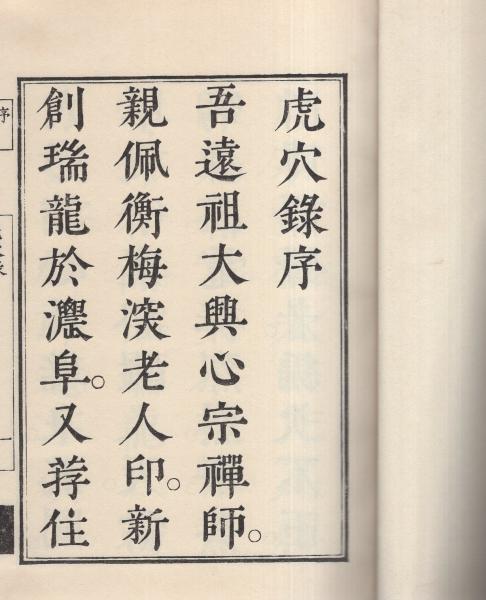 虎穴錄序
吾遠祖大興心宗禪師。
親佩衡梅湥老人印。新
創瑞龍於濃阜。又荐住
序